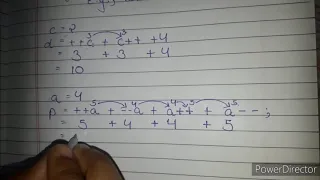 c = 2
d = ++c + c++ + 4
= 3 + 3 + 4
= 10
a = 4
A = ++a + --a + a++ + a-- ;
= 5 + 4 + 4 + 5
=
PowerDirector